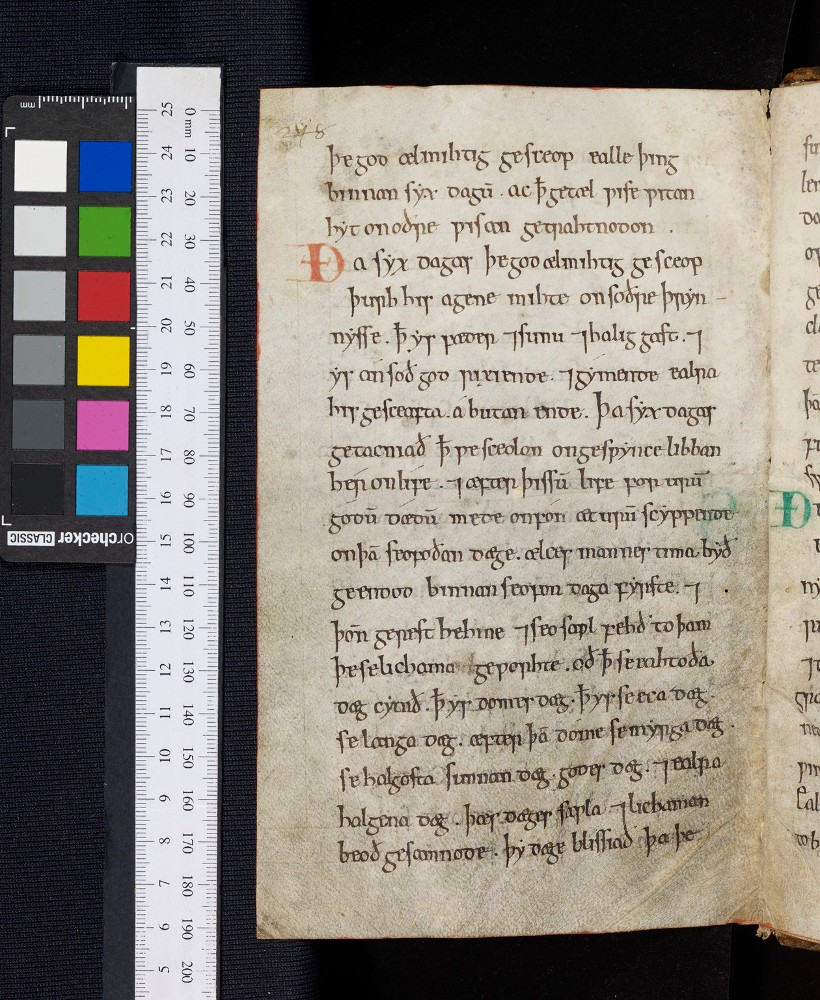 248
þe god ælmihtig gesceop ealle þing
binnan syx dagū . ac þ̄ getæl wise witan
hyt on oðre wisan getrahtnodon .
Ða syx dagas þe god ælmihtig gesceop
þurh his agene mihte on soðre þryn-
nysse . þ̄ ys fæder ⁊ sunu ⁊ halig gast . ⁊
ys an soð god rixiende . ⁊ gymende ealra
his gesceafta . á butan ende . Þa syx dagas
getacniað þ̄ we sceolon on geswynce libban
her on life . ⁊ æfter þissū life for urū
godū dædū mede onfon æt urū scyppende
on þā seofoðan dæge . ælces mannes tima byð
geendod binnan seofon daga fyrste . ⁊
þoñ gerest he hine ⁊ seo sapl
þe se lichama geworhte . oð þ̄ se eahtoða
dæg cymð . þ̄ ys domes dæg . þ̄ ys se eca dæg .
se langa dæg . æfter þā dome se myrga dæg .
se halgosta sunnan dæg . godes dæg . ⁊ ealra
halgena dæg . þæs dæges sapla ⁊ lichaman
beoð gesamnode . þy dæge blissiað þa þe